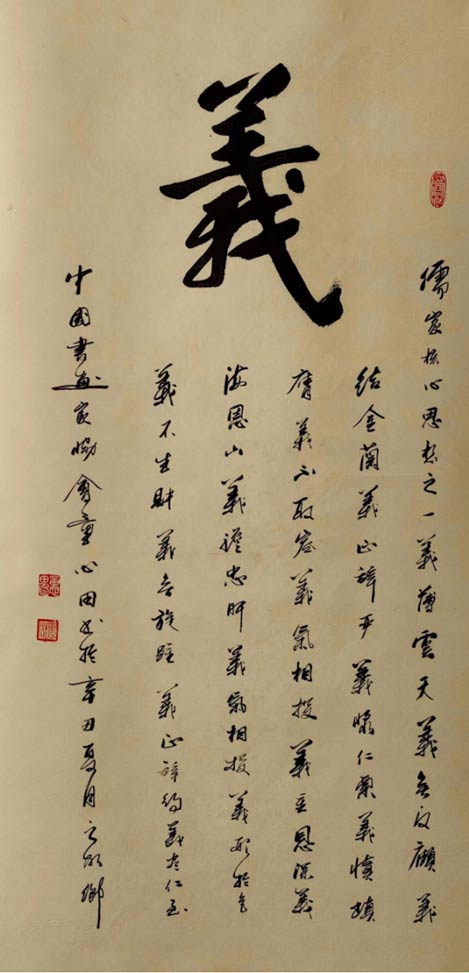 義
儒家核心思想之一義薄雲天義無反顧義
结金蘭義正辞严義漿仁粟義憤填
膺義不取容義氣相投義重恩深義
海恩山義膽忠肝義氣相投義形於色
義不生財義無旋踵義正辞約義尽仁至
中國書画家協會童心田书於辛丑夏月鄉